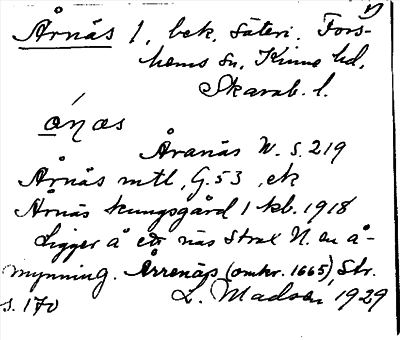 Årnäs 1, bek. säteri. Fors-
hems sn, Kinne hd,
Skarab. l.
Åranäs W. s. 219
Årnäs mtl, G. 53, ek
Årnäs kungsgård 1 kb. 1918
Ligger å ett näs strax N. en å-
mynning. Årrenäs (omkr. 1665), Str.
s. 170 L. Madsen, 1929